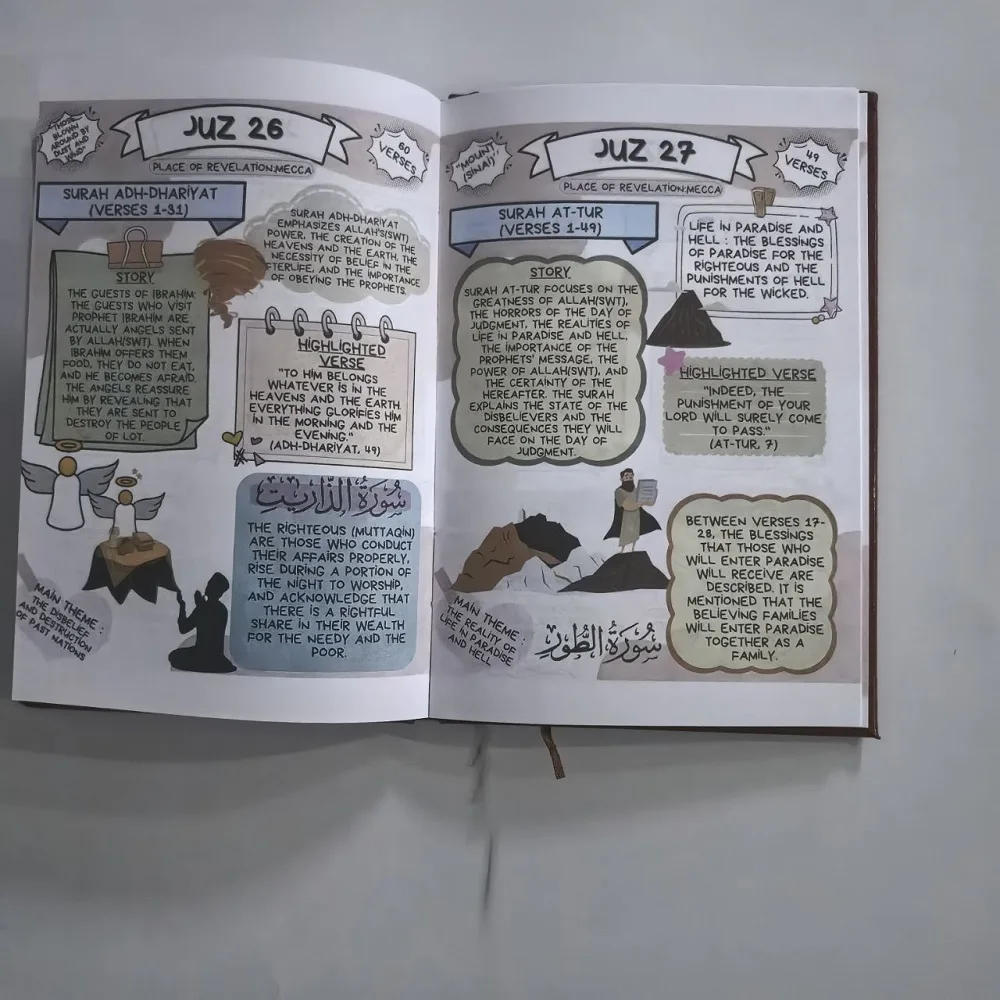 "THOSE
BLOWN
AROUND BY
DUST AND
WIND"
JUZ 26
60
VERSES
PLACE OF REVELATION:MECCA
SURAH ADH-DHARİYAT
(VERSES 1-31)
SURAH ADH-DHARİYAT
EMPHASIZES ALLAH'S(SWT)
POWER, THE CREATION OF THE
HEAVENS AND THE EARTH, THE
NECESSITY OF BELIEF IN THE
AFTERLIFE, AND THE IMPORTANCE
OF OBEYING THE PROPHETS.
STORY
THE GUESTS OF IBRAHIM:
THE GUESTS WHO VISIT
PROPHET IBRAHIM ARE
ACTUALLY ANGELS SENT
BY ALLAH(SWT). WHEN
IBRAHIM OFFERS THEM
FOOD, THEY DO NOT EAT,
AND HE BECOMES AFRAID.
THE ANGELS REASSURE
HIM BY REVEALING THAT
THEY ARE SENT TO
DESTROY THE PEOPLE
OF LOT.
HİGHLİGHTED
VERSE
"TO HIM BELONGS
WHATEVER IS IN THE
HEAVENS AND THE EARTH.
EVERYTHING GLORIFIES HIM
IN THE MORNING AND THE
EVENING."
(ADH-DHARIYAT, 49)
سُورَةُ الذَّارِيَاتِ
THE RİGHTEOUS (MUTTAQİN)
ARE THOSE WHO CONDUCT
THEIR AFFAIRS PROPERLY,
RISE DURING A PORTION OF
THE NIGHT TO WORSHIP,
AND ACKNOWLEDGE THAT
THERE IS A RIGHTFUL
SHARE IN THEIR WEALTH
FOR THE NEEDY AND THE
POOR.
MAIN THEME :
THE DISBELIEF
AND DESTRUCTION
OF PAST NATIONS
"MOUNT
(SINAI)"
JUZ 27
49
VERSES
PLACE OF REVELATION:MECCA
SURAH AT-TUR
(VERSES 1-49)
LIFE IN PARADISE AND
HELL : THE BLESSINGS
OF PARADISE FOR THE
RIGHTEOUS AND THE
PUNISHMENTS OF HELL
FOR THE WICKED.
STORY
SURAH AT-TUR FOCUSES ON THE
GREATNESS OF ALLAH(SWT),
THE HORRORS OF THE DAY OF
JUDGMENT, THE REALITIES OF
LIFE IN PARADISE AND HELL,
THE IMPORTANCE OF THE
PROPHETS' MESSAGE, THE
POWER OF ALLAH(SWT), AND
THE CERTAINTY OF THE
HEREAFTER. THE SURAH
EXPLAINS THE STATE OF THE
DISBELIEVERS AND THE
CONSEQUENCES THEY WILL
FACE ON THE DAY OF
JUDGMENT.
HİGHLİGHTED VERSE
"INDEED, THE
PUNISHMENT OF YOUR
LORD WILL SURELY COME
TO PASS."
(AT-TUR, 7)
BETWEEN VERSES 17-
28, THE BLESSINGS
THAT THOSE WHO
WILL ENTER PARADISE
WILL RECEIVE ARE
DESCRIBED. IT IS
MENTIONED THAT THE
BELIEVING FAMILIES
WILL ENTER PARADISE
TOGETHER AS A
FAMILY.
MAIN THEME :
THE REALITY OF
LIFE IN PARADISE
AND HELL
سُورَةُ الطُّورِ